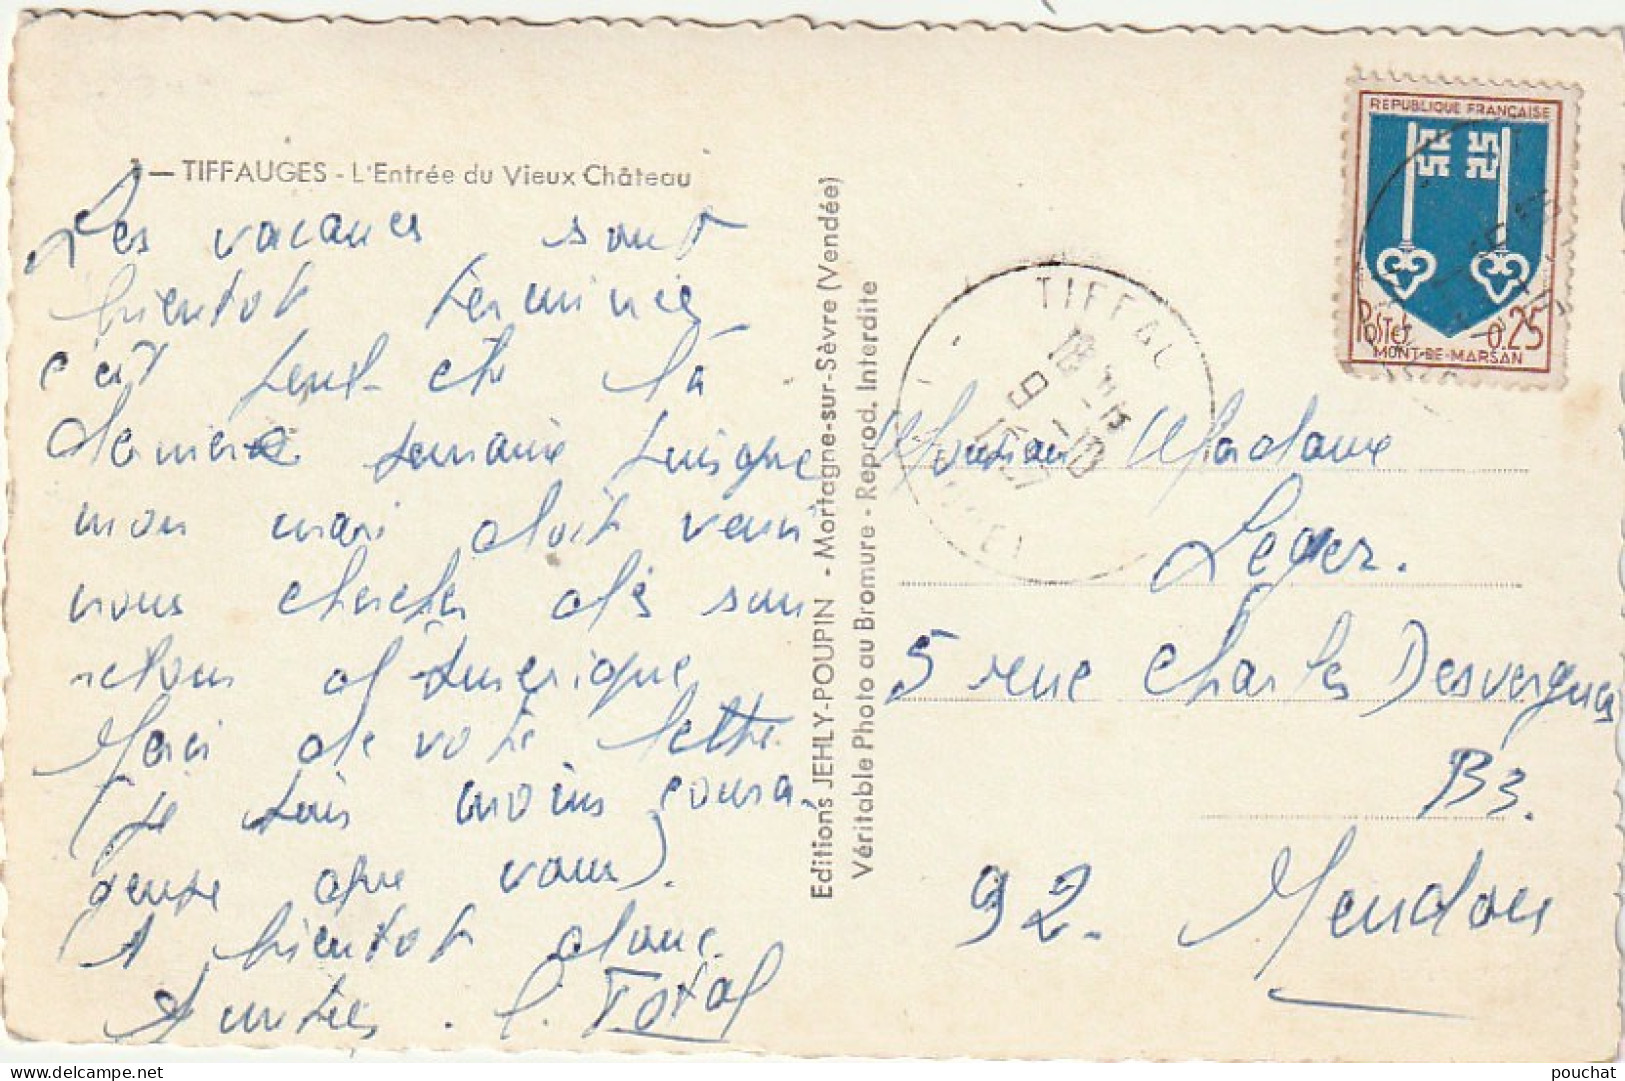 1 — TIFFAUGES - L'Entrée du Vieux Château
Les vacances sont
bientôt terminées
c'est peut-être la
dernière semaine puisque
mon mari doit venir
nous chercher dès son
retour d'Amérique
Merci de votre lettre
(je suis moins coura
geuse que vous).
A bientôt donc.
Amitiés. C. Total
Editions JEHLY-POUPIN - Mortagne-sur-Sèvre (Vendée)
Véritable Photo au Bromure - Reprod. Interdite
TIFFAU
REPUBLIQUE FRANÇAISE
POSTES 0,25
MONT-DE-MARSAN
Monsieur Madame
Léger.
5 rue Charles Desvergnes
B3.
92. Meudon
© pouchat
www.delcampe.net